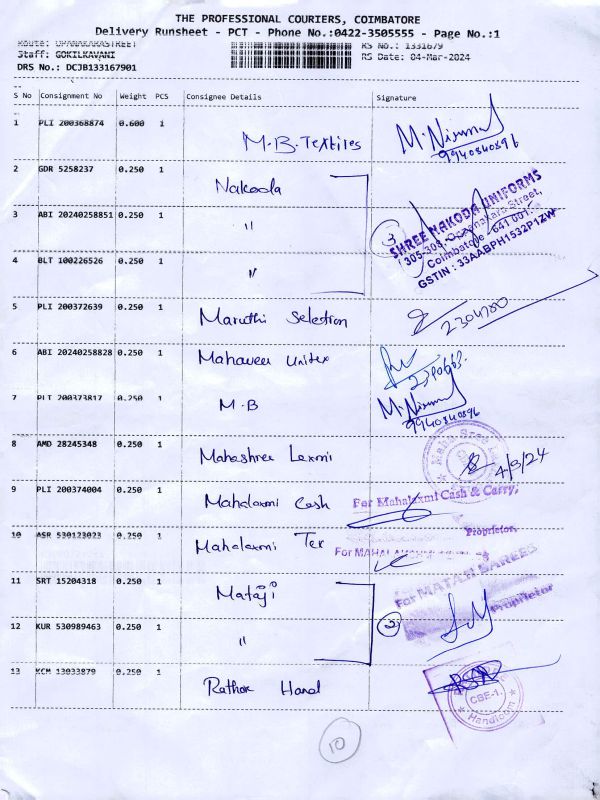 THE PROFESSIONAL COURIERS, COIMBATORE
Delivery Runsheet - PCT - Phone No.:0422-3505555 - Page No.:1
Route: OPANAKARASTREET RS No.: 1331679
Staff: GOKILKAVANI RS Date: 04-Mar-2024
DRS No.: DCJB133167901
S No Consignment No Weight PCS Consignee Details Signature
1 PLI 200368874 0.600 1 M.B. Textiles M. Nirmal
9940840896
2 GDR 5258237 0.250 1 Nakoda
3 ABI 20240258851 0.250 1 〃 3
SHREE NAKODA UNIFORMS
305-308, Oppanakara Street,
Coimbatore - 641 001.
GSTIN : 33AABPH1532P1ZW
4 BLT 100226526 0.250 1 〃
5 PLI 200372639 0.250 1 Maruthi Selection 2304780
6 ABI 20240258828 0.250 1 Mahaveer Unitex
7 PLI 200373817 0.250 1 M.B M. Nirmal
9940840896
8 AMD 28245348 0.250 1 Mahashree Laxmi 4/3/24
9 PLI 200374004 0.250 1 Mahalaxmi Cash For Mahalaxmi Cash & Carry,
Proprietor.
10 ASR 530123023 0.250 1 Mahalaxmi Tex
11 SRT 15204318 0.250 1 Mataji For MATAJI SAREES
Proprietor
12 KUR 530989463 0.250 1 〃 2
13 KCM 13033879 0.250 1 Rathor Hand CBE-1.
Handloom
10